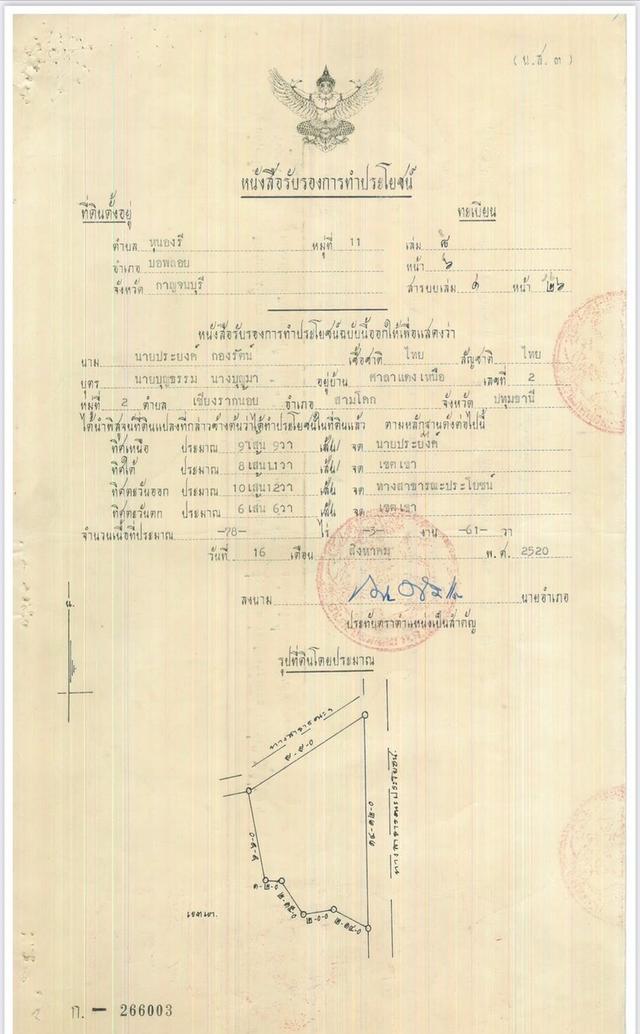 (น.ส. ๓)
หนังสือรับรองการทำประโยชน์
ที่ดินตั้งอยู่ ทะเบียน
ตำบล หนองรี หมู่ที่ 11 เล่ม
อำเภอ บอพลอย หน้า ๖
จังหวัด กาญจนบุรี สารบบเล่ม ๑ หน้า ๒๖
หนังสือรับรองการทำประโยชน์ฉบับนี้ออกให้เพื่อแสดงว่า
นาม นายประยงค์ กองรัตน์ เชื้อชาติ ไทย สัญชาติ ไทย
บุตร นายบุญธรรม นางบุญมา อยู่บ้าน ศาลาแดงเหนือ เลขที่ 2
หมู่ที่ 2 ตำบล เชียงรากนอย อำเภอ สามโคก จังหวัด ปทุมธานี
ได้นำพิสูจน์ที่ดินแปลงที่กล่าวข้างต้นว่าได้ทำประโยชน์ในที่ดินแล้ว ตามหลักฐานดังต่อไปนี้
ทิศเหนือ ประมาณ 9 เส้น 9 วา เส้น/ จด นายประยงค์
ทิศใต้ ประมาณ 8 เส้น 11 วา เส้น/ จด เขตเขา
ทิศตะวันออก ประมาณ 10 เส้น 12 วา เส้น จด ทางสาธารณะประโยชน์
ทิศตะวันตก ประมาณ 6 เส้น 6 วา เส้น จด เขตเขา
จำนวนเนื้อที่ประมาณ -78- ไร่ -3- งาน -61- วา
วันที่ 16 เดือน สิงหาคม พ.ศ. 2520
ลงนาม นายอำเภอ
ประทับตราตำแหน่งเป็นสำคัญ
รูปที่ดินโดยประมาณ
น.
ทางสาธารณะฯ
ทางสาธารณะประโยชน์
เขตเขา
ก. - 266003